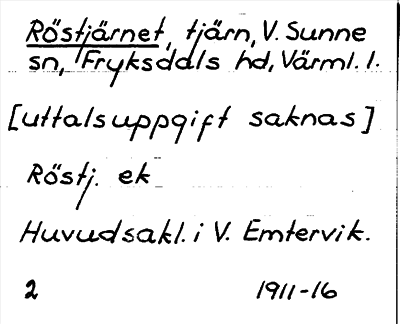 Röstjärnet, tjärn, V. Sunne
sn, Fryksdals hd, Värml. l.
[uttalsuppgift saknas]
Röstj. ek
Huvudsakl. i V. Emtervik.
2 1911-16